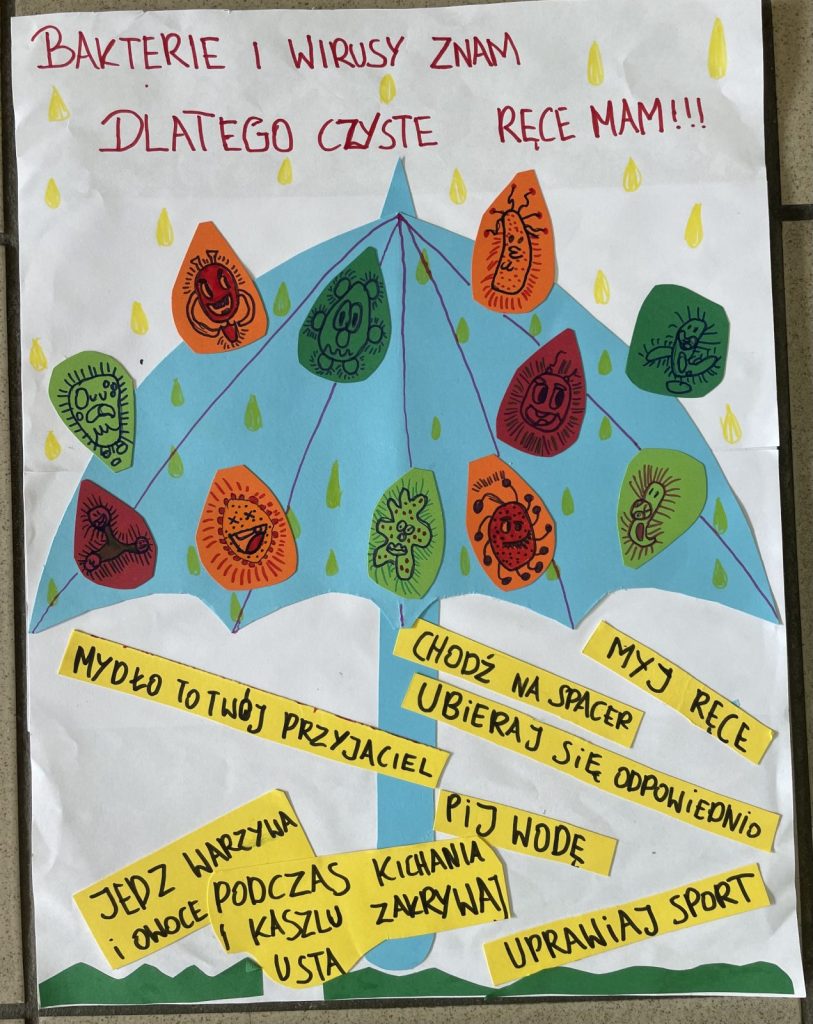 BAKTERIE I WIRUSY ZNAM
DLATEGO CZYSTE RĘCE MAM!!!
MYDŁO TO TWÓJ PRZYJACIEL
CHODŹ NA SPACER
MYJ RĘCE
UBIERAJ SIĘ ODPOWIEDNIO
PIJ WODĘ
JEDZ WARZYWA
i OWOCE
PODCZAS KICHANIA
I KASZLU ZAKRYWAJ
USTA
UPRAWIAJ SPORT